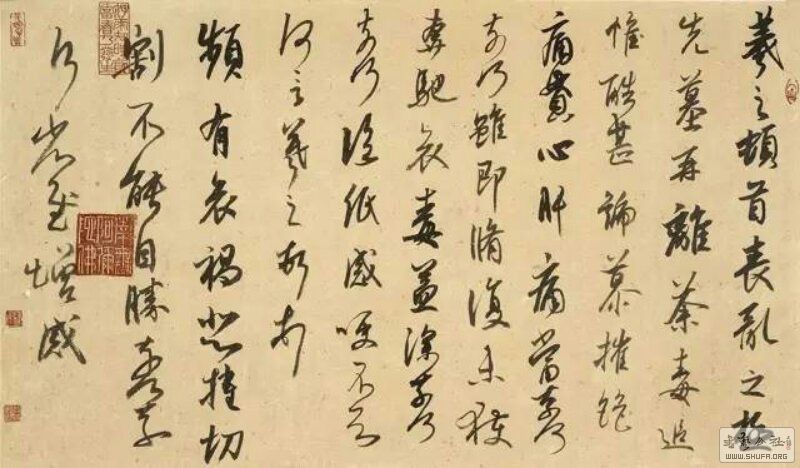 羲之頓首喪亂之極
先墓再離荼毒追
惟酷甚號慕摧絕
痛貫心肝痛當奈何
奈何雖即脩復未獲
奔馳哀毒益深奈何
奈何臨紙感哽不知
何言羲之頓首
頻有哀禍悲摧切
割不能自勝奈何奈
何省慰增感
WWW.SHUFA.ORG